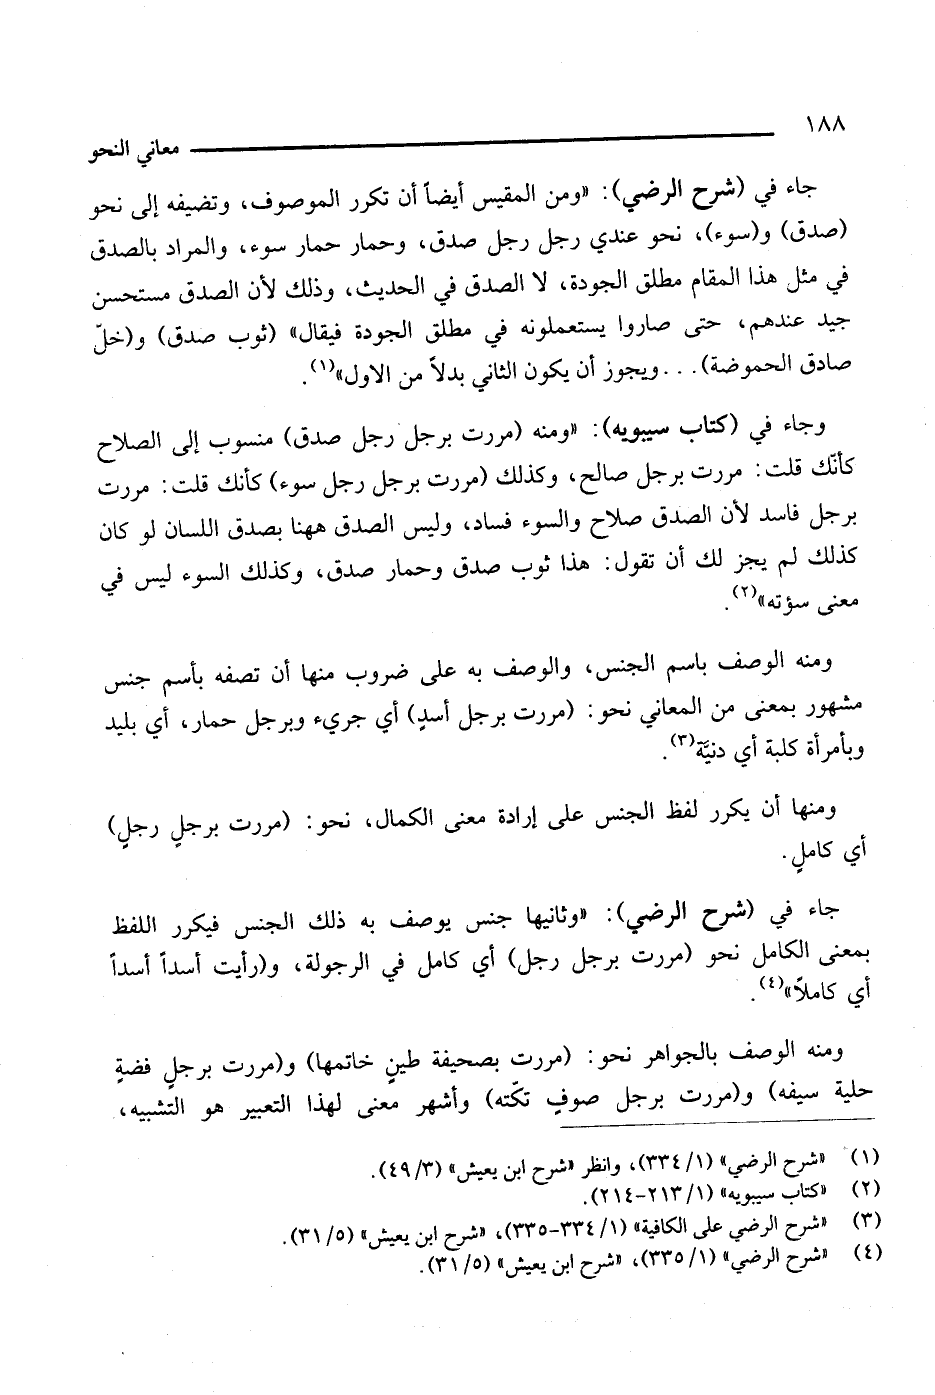 ١٨٨
معاني النحو
جاء في (شرح الرضي): «ومن المقيس أيضاً أن تكرر الموصوف، وتضيفه إلى نحو
(صدق) و(سوء)، نحو عندي رجل رجل صدق، وحمار حمار سوء، والمراد بالصدق
في مثل هذا المقام مطلق الجودة، لا الصدق في الحديث، وذلك لأن الصدق مستحسن
جيد عندهم، حتى صاروا يستعملونه في مطلق الجودة فيقال» (ثوب صدق) و(خلّ
صادق الحموضة)...ويجوز أن يكون الثاني بدلاً من الاول»(١).
وجاء في (كتاب سيبويه): «ومنه (مررت برجل رجل صدق) منسوب إلى الصلاح
كأنّك قلت: مررت برجل صالح، وكذلك (مررت برجل رجل سوء) كأنك قلت: مررت
برجل فاسد لأن الصدق صلاح والسوء فساد، وليس الصدق ههنا بصدق اللسان لو كان
كذلك لم يجز لك أن تقول: هذا ثوب صدق وحمار صدق، وكذلك السوء ليس في
معنى سؤته»(٢).
ومنه الوصف باسم الجنس، والوصف به على ضروب منها أن تصفه بأسم جنس
مشهور بمعنى من المعاني نحو: (مررت برجل أسدٍ) أي جريء وبرجل حمار، أي بليد
وبأمرأة كلبة أي دنيَّة(٣).
ومنها أن يكرر لفظ الجنس على إرادة معنى الكمال، نحو: (مررت برجلٍ رجلٍ)
أي كاملٍ.
جاء في (شرح الرضي): «وثانيها جنس يوصف به ذلك الجنس فيكرر اللفظ
بمعنى الكامل نحو (مررت برجل رجل) أي كامل في الرجولة، و(رأيت أسداً أسداً
أي كاملاً»(٤).
ومنه الوصف بالجواهر نحو: (مررت بصحيفة طينٍ خاتمها) و(مررت برجلٍ فضةٍ
حلية سيفه) و(مررت برجل صوفٍ تكّته) وأشهر معنى لهذا التعبير هو التشبيه،
(١) «شرح الرضي» (١/ ٣٣٤)، وانظر «شرح ابن يعيش» (٣/ ٤٩).
(٢) «كتاب سيبويه» (١/ ٢١٣-٢١٤).
(٣) «شرح الرضي على الكافية» (١/ ٣٣٤-٣٣٥)، «شرح ابن يعيش» (٥/ ٣١).
(٤) «شرح الرضي» (١/ ٣٣٥)، «شرح ابن يعيش» (٥/ ٣١).